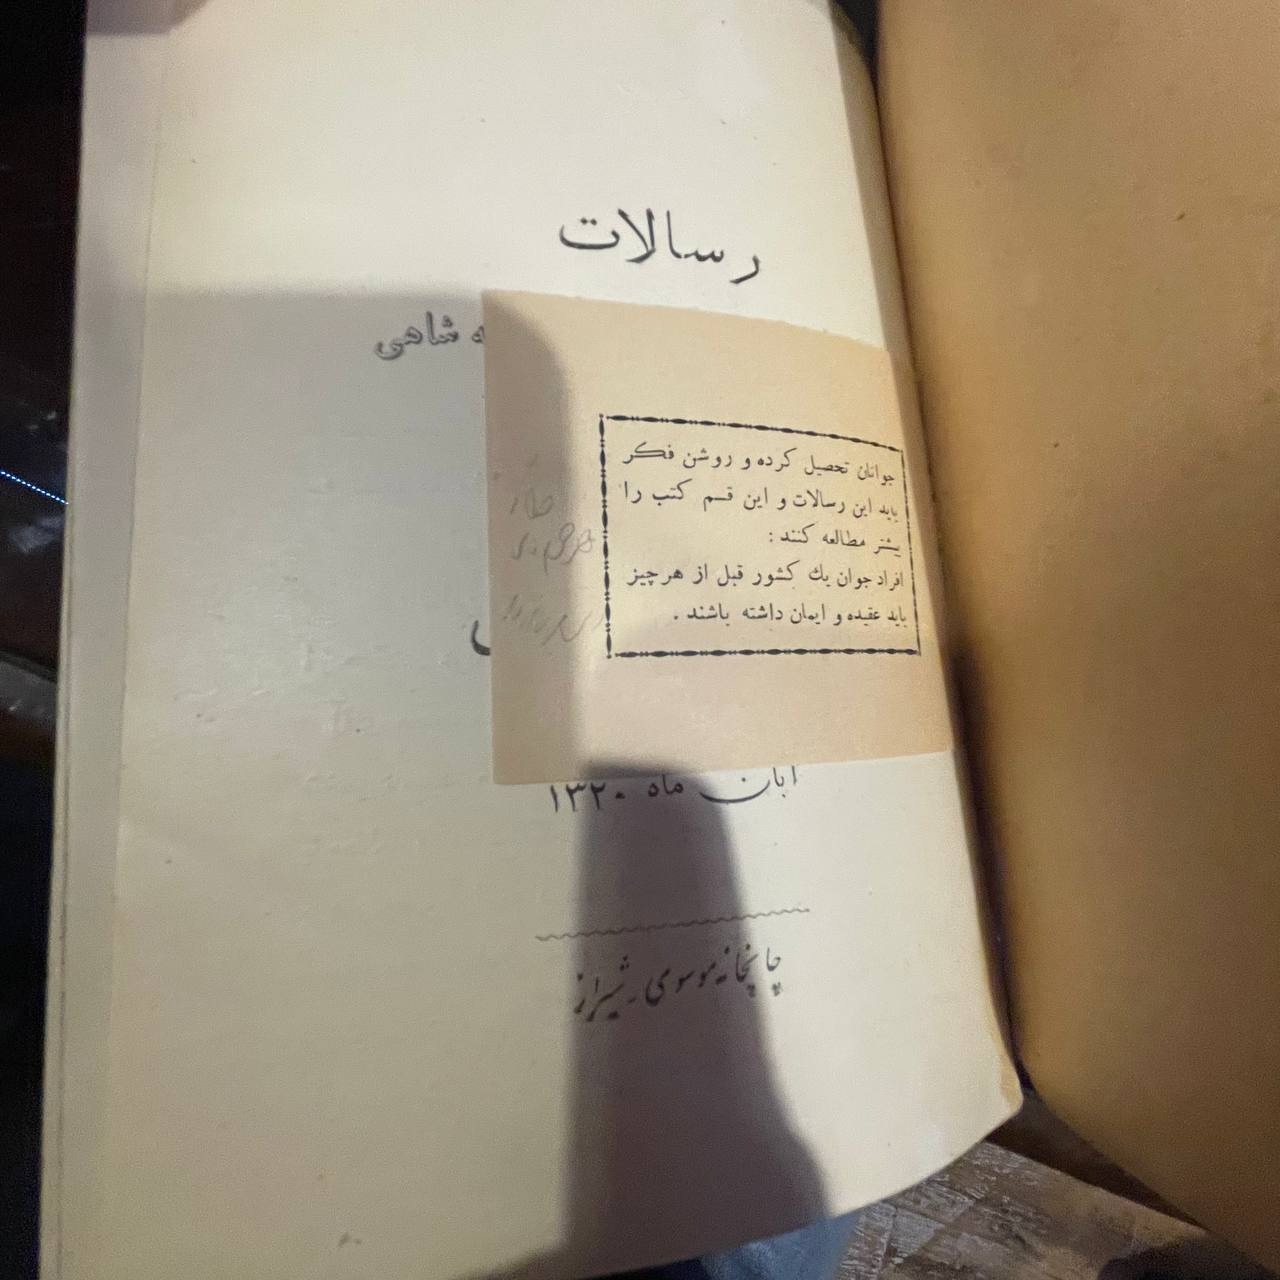 رسالات
ه شاهی
جوانان تحصیل کرده و روشن فکر
باید این رسالات و این قسم کتب را
بیشتر مطالعه کنند :
افراد جوان یك کشور قبل از هر چیز
باید عقیده و ایمان داشته باشند .
آبان ماه ۱۳۲۰
چاپخانه موسوی - شیراز